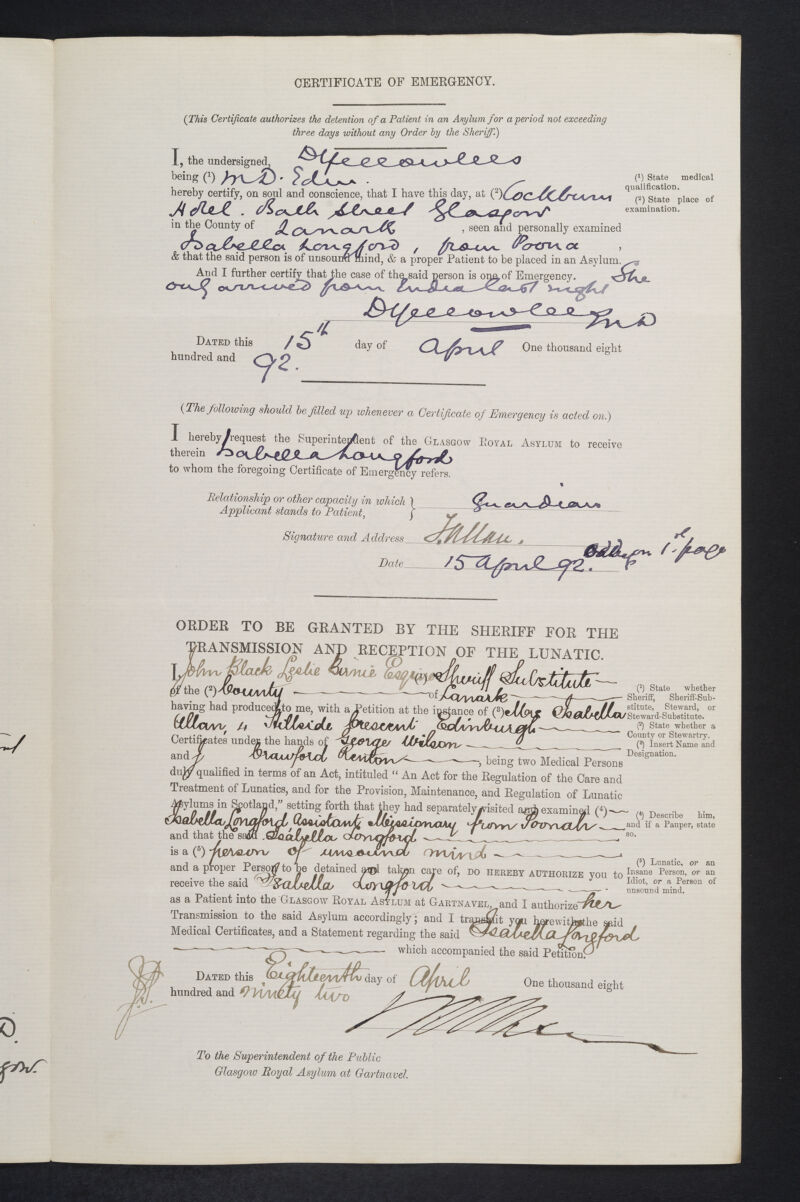 CERTIFICATE OF EMERGENCY.
(This Certificate authorizes the detention of a Patient in an Asylum for a period not exceeding
three days without any Order by the Sheriff.)
I, the undersigned, D Yellowlees
being (1) M.D. Edin.
hereby certify, on soul and conscience, that I have this day, at (2) Cockburn
Hotel. Bath Street Glasgow
in the County of Lanark , seen and personally examined
Isabella Longford, from Poona ,
& that the said person is of unsound mind, & a proper Patient to be placed in an Asylum.
And I further certify that the case of the said person is one of Emergency. She
only arrived from India last night
D Yellowlees MD
DATED this 15th day of April One thousand eight
hundred and 92.
(1) State medical
qualification.
(2) State place of
examination.
(The following should be filled up whenever a Certificate of Emergency is acted on.)
I hereby request the Superintendent of the GLASGOW ROYAL ASYLUM to receive
therein Isabella Longford
to whom the foregoing Certificate of Emergency refers.
Relationship or other capacity in which
Applicant stands to Patient, } Guardian
Signature and Address I. Allan. on 1st page
Date 15 April 92.
ORDER TO BE GRANTED BY THE SHERIFF FOR THE
TRANSMISSION AND RECEPTION OF THE LUNATIC.
I, John Black Leslie Birnie Esquire (1) Sheriff Substitute
of the (2) County of Lanark
having had produced to me, with a Petition at the instance of (3) Mrs Isabella
Allan, 4 Hillside Crescent Edinburgh
Certificates under the hands of George Wilson
and J Crawford Renton , being two Medical Persons
duly qualified in terms of an Act, intituled "An Act for the Regulation of the Care and
Treatment of Lunatics, and for the Provision, Maintenance, and Regulation of Lunatic
Asylums in Scotland," setting forth that they had separately visited and examined (4)
Isabella Longford Assistant Missionary from Poonah
and that the said Isabella Longford
is a (5) person of unsound mind
and a proper Person to be detained and taken care of, DO HEREBY AUTHORIZE you to
receive the said Isabella Longford
as a Patient into the GLASGOW ROYAL ASYLUM at GARTNAVEL, and I authorize her
Transmission to the said Asylum accordingly; and I transmit you herewith the said
Medical Certificates, and a Statement regarding the said Isabella Longford
which accompanied the said Petition.
DATED this Eighteenth day of April One thousand eight
hundred and ninety two
(1) State whether
Sheriff, Sheriff-Sub-
stitute, Steward, or
Steward-Substitute.
(2) State whether a
County or Stewartry.
(3) Insert Name and
Designation.
(4) Describe him,
and if a Pauper, state
so.
(5) Lunatic, or an
Insane Person, or an
Idiot, or a Person of
unsound mind.
To the Superintendent of the Public
Glasgow Royal Asylum at Gartnavel.